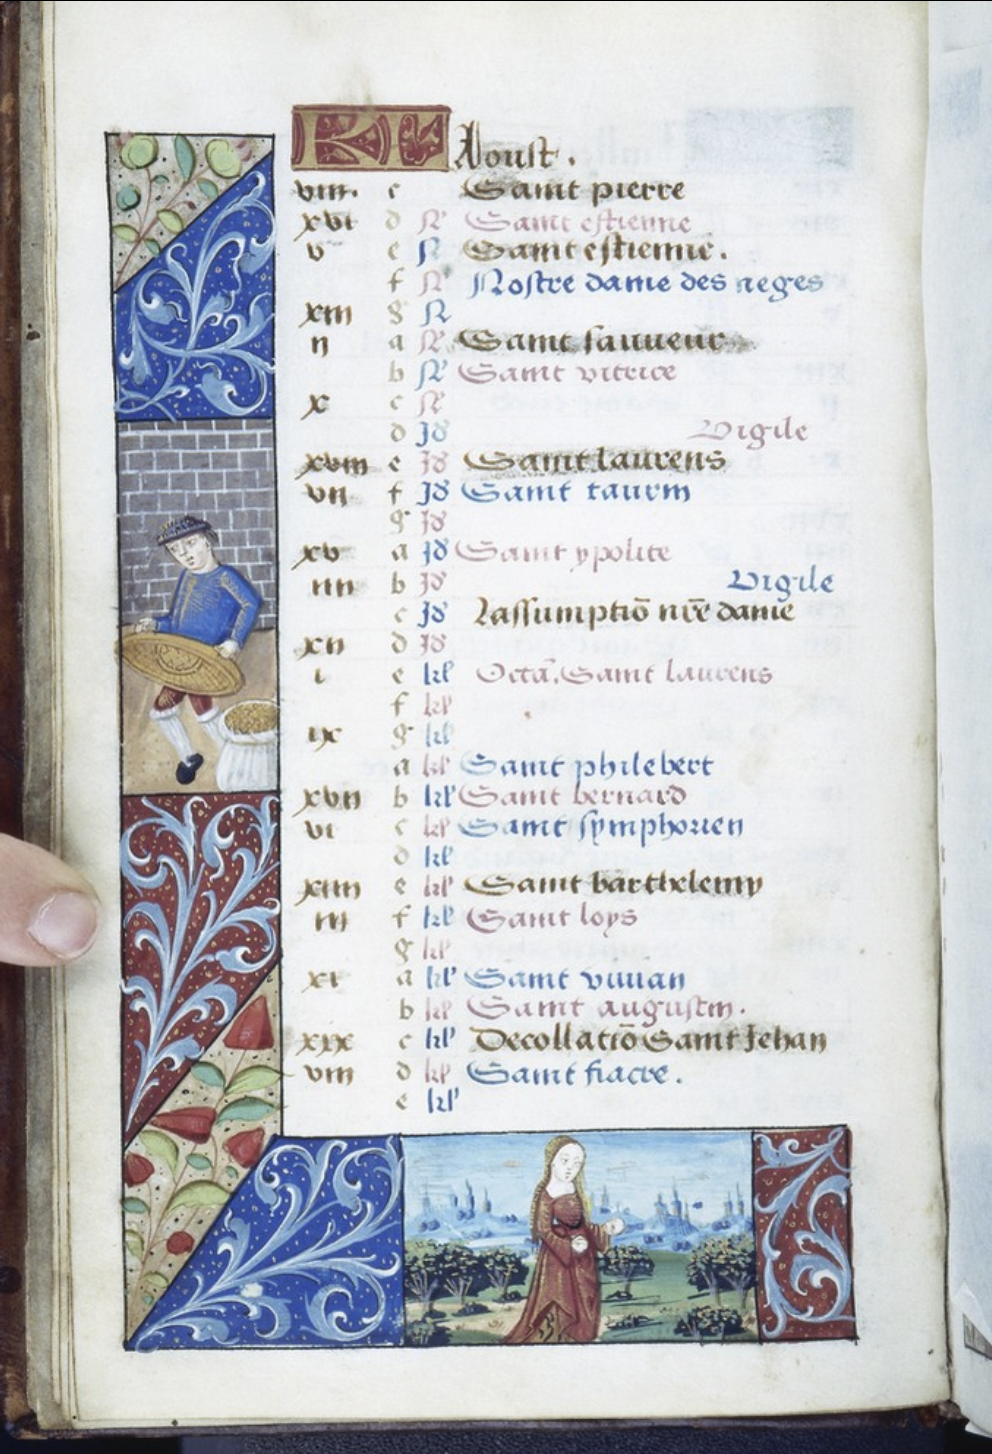 KL Aoust.
viii c Saint pierre
xvi d N Saint estienne
v e N Saint estienne.
f N Nostre dame des neges
xiii g N
ii a N Saint sauueur
b N Saint victrice
x c N
d Id Vigile
xviii e Id Saint laurens
vii f Id Saint taurin
g Id
xv a Id Saint ypolite
iiii b Id Vigile
c Id Lassumptiō nr̄e dame
xii d Id
i e kl Octā. Saint laurens
f kl
ix g kl
a kl Saint philebert
xvii b kl Saint bernard
vi c kl Saint symphorien
d kl
xiiii e kl Saint barthelemy
iii f kl Saint loys
g kl
xi a kl Saint viuian
b kl Saint augustin.
xix c kl Decollatiō Saint Jehan
viii d kl Saint fiacre.
e kl